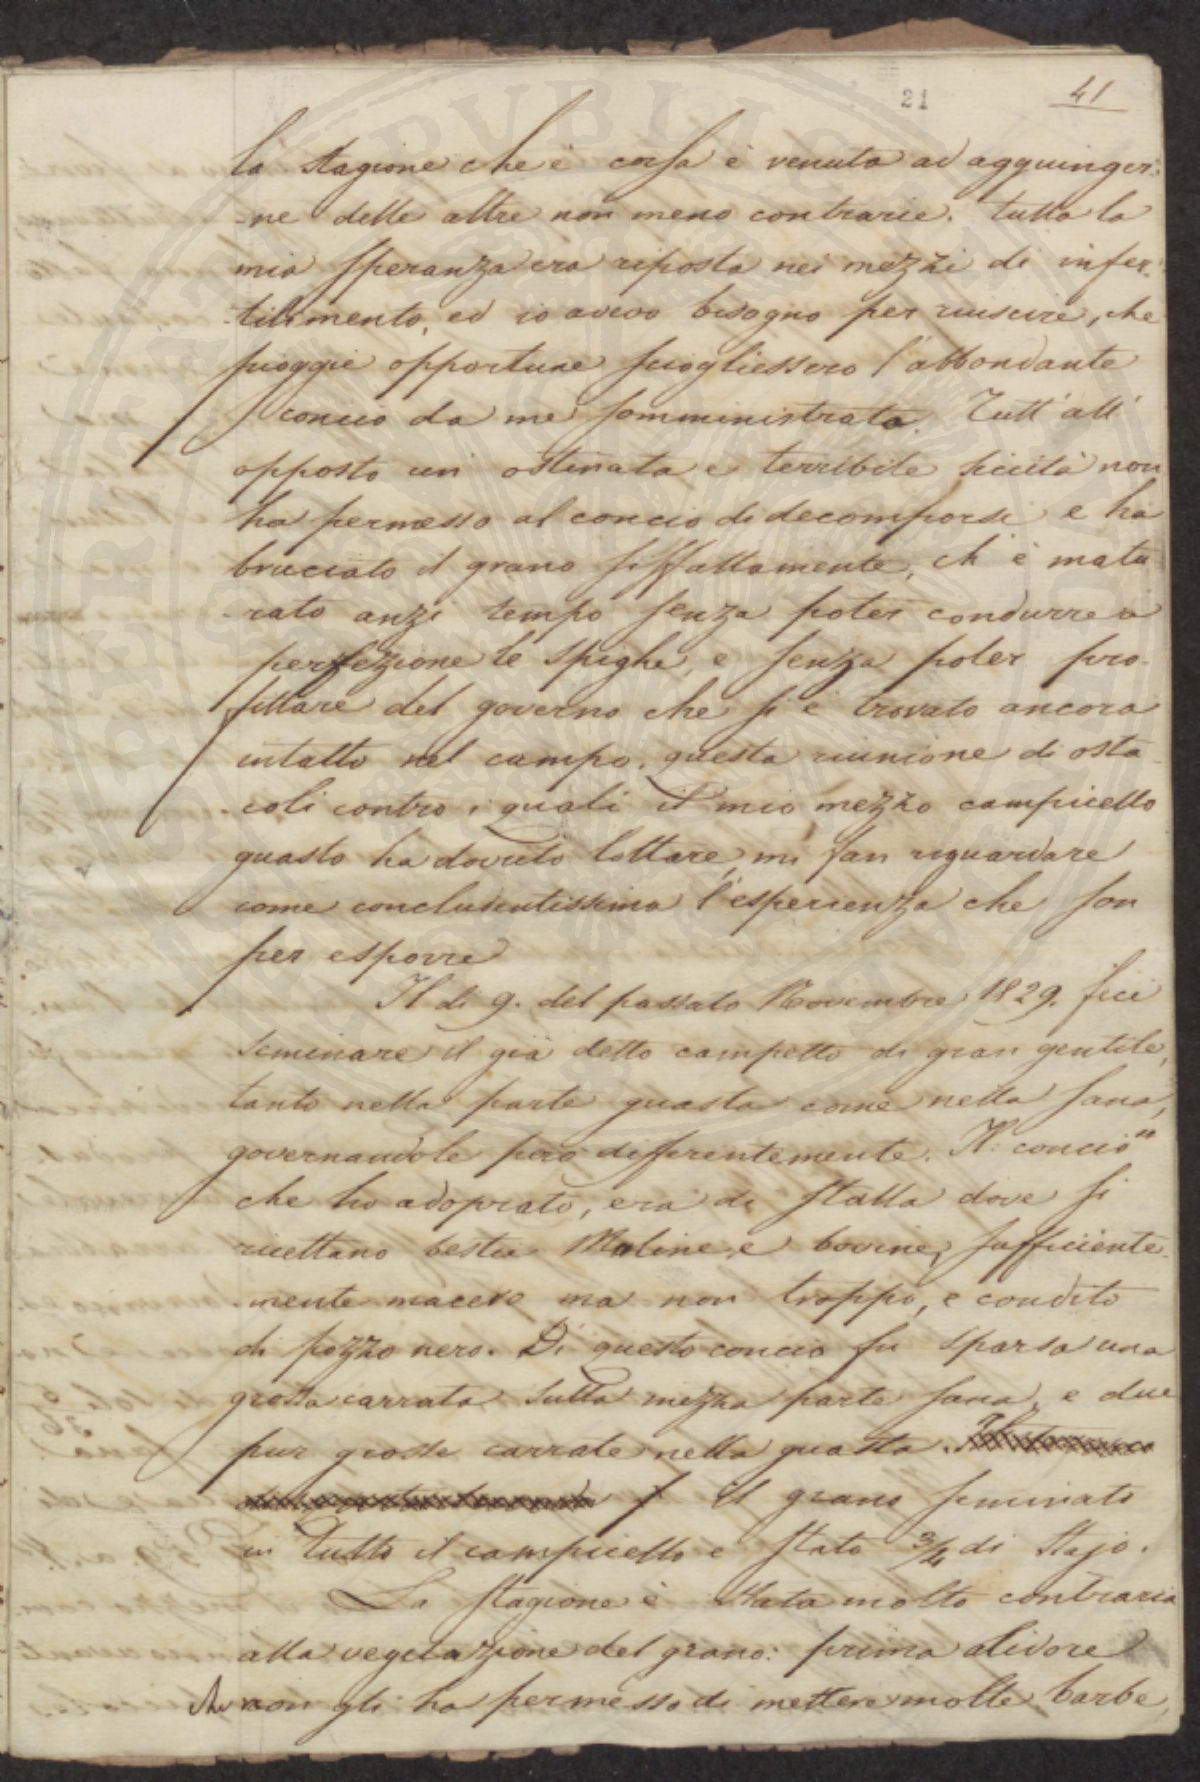 21
41
la stagione che è corsa è venuta ad aggiunger-
-ne delle altre non meno contrarie. tutta la
mia speranza era riposta nei mezzi di infer-
-tilimento, ed io avevo bisogno per riuscire, che
pioggie opportune sciogliessero l'abbondante
concio da me somministrato. Tutt'all'
opposto un' ostinata e terribile siccità non
ha permesso al concio di decomporsi e ha
bruciato il grano siffattamente, ch' è matu
-rato anzi tempo senza poter condurre a
perfezione le spighe, e senza poter pro-
fittare del governo che si è trovato ancora
intatto nel campo. questa riunione di osta
-coli contro i quali il mio mezzo campicello
guasto ha dovuto lottare, mi fan riguardare
come concludentissima l'esperienza che son
per esporre
Il di 9. del passato Novembre 1829. feci
seminare il già detto campetto di gran gentile,
tanto nella parte guasta come nella sana,
governandole però differentemente. Il concio
che ho adoprato, era di stalla dove si
ricettano bestie Muline, e bovine, sufficiente-
mente macero ma non troppo, e condito
di pozzo nero. Di questo concio fu sparsa una
grossa carrata sulla mezza parte sana, e due
pur grosse carrate nella guasta.
il grano seminato
in tutto il campicello è stato 3/4 di stajo.
La stagione è stata molto contraria
alla vegetazione del grano: prima alidore
che non gli ha permesso di mettere molte barbe,